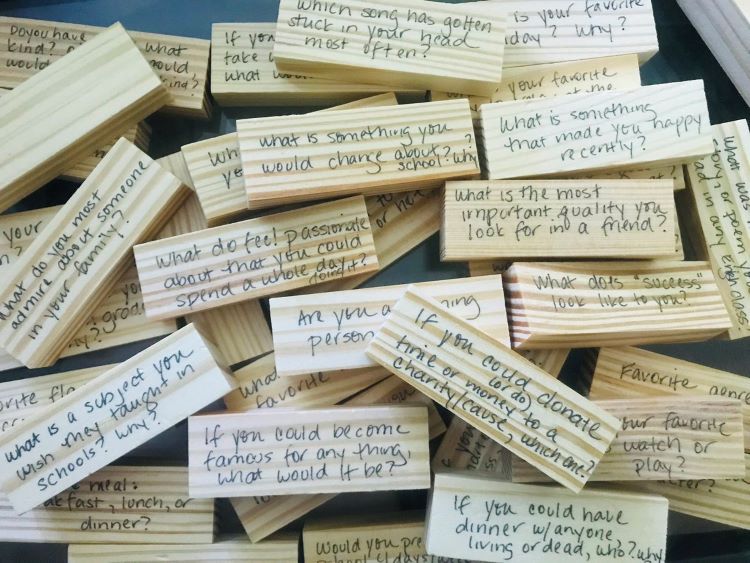 Do you have
kind?
would
what
would,
If you
take
what
Which song has gotten
stuck in your head
most often?
is your favorite
day? Why?
your favorite
What is something you
would change about
school? why
What is something
that made you happy
recently?
What was
story? or poem you
in any english class?
What do you most
admire about someone
in your family?
your
What do feel passionate
about that you could
spend a whole day
doing it?
What is the most
important quality you
look for in a friend?
What does "success"
look like to you?
Are you a
person
If you could donate
time or (or do)
money to a
charity/cause, which one?
What
favorite
What is a subject you
wish they taught in
schools? why?
If you could become
famous for any thing,
what would it be?
Favorite
your favorite
watch or
play?
meal:
lunch, or
dinner?
Would you
If you could have
dinner w/anyone,
living or dead, who? why